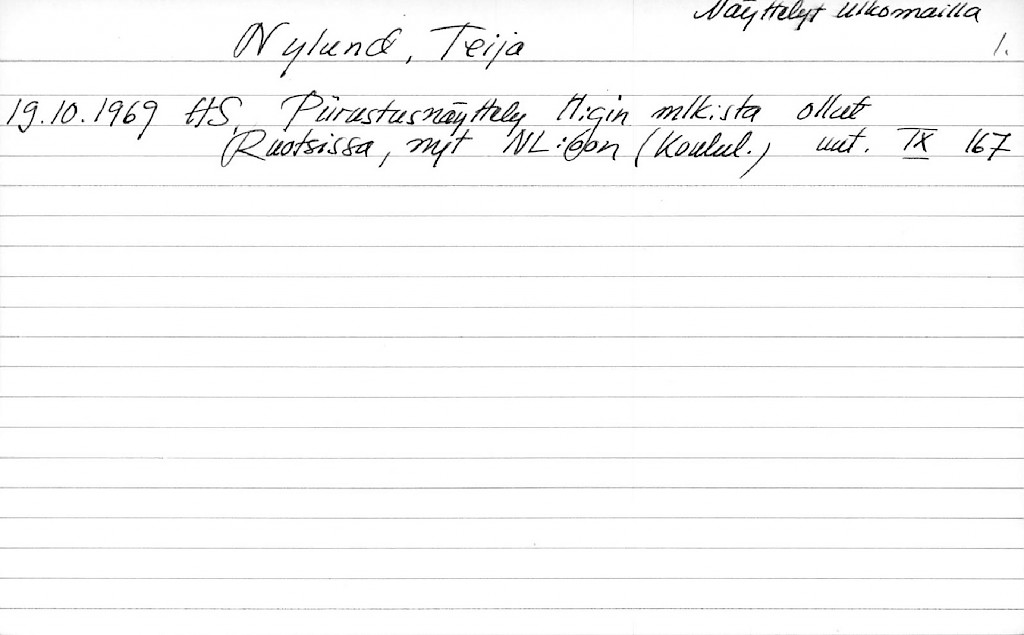 Näyttelyt ulkomailla
Nylund, Teija 1.
19.10.1969 HS, Piirustusnäyttely H:gin mlk:sta ollut
Ruotsissa, nyt NL:oon (Koulul.) uut. IX 167